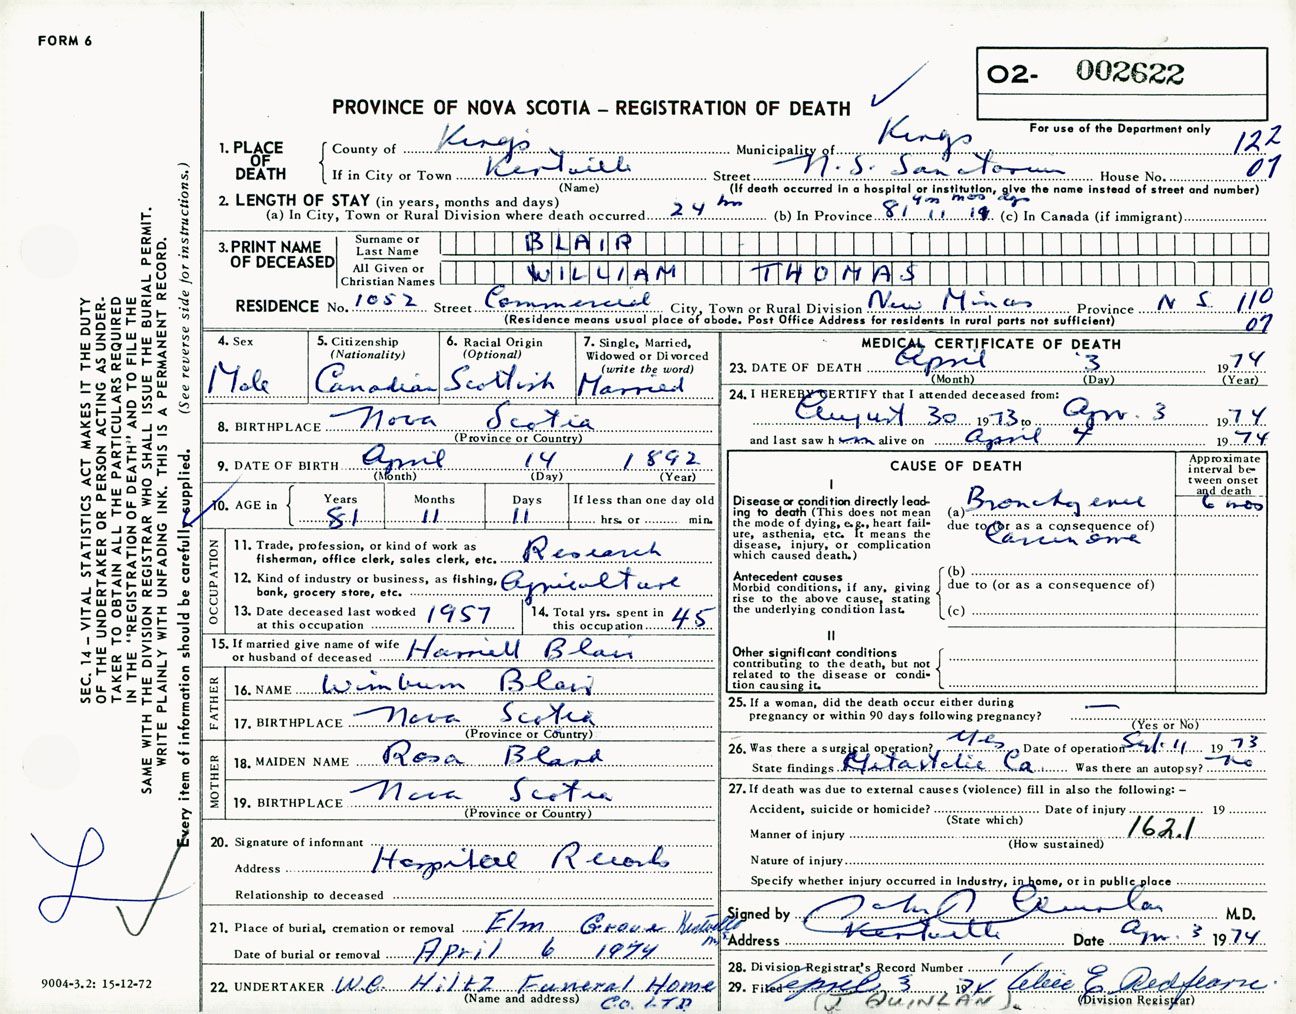 FORM 6
O2- 002622
PROVINCE OF NOVA SCOTIA – REGISTRATION OF DEATH
For use of the Department only
122
07
1. PLACE OF DEATH
County of Kings Municipality of Kings
If in City or Town Kentville Street N. S. Sanatorium House No.
(Name) (If death occurred in a hospital or institution, give the name instead of street and number)
2. LENGTH OF STAY (in years, months and days)
(a) In City, Town or Rural Division where death occurred 24 hrs (b) In Province 81 yrs 11 mos 19 dys (c) In Canada (if immigrant)
3. PRINT NAME OF DECEASED
Surname or Last Name BLAIR
All Given or Christian Names WILLIAM THOMAS
RESIDENCE No. 1052 Street Commercial City, Town or Rural Division New Minas Province N S. 110
(Residence means usual place of abode. Post Office Address for residents in rural parts not sufficient) 07
4. Sex
Male
5. Citizenship
(Nationality)
Canadian
6. Racial Origin
(Optional)
Scottish
7. Single, Married,
Widowed or Divorced
(write the word)
Married
8. BIRTHPLACE Nova Scotia
(Province or Country)
9. DATE OF BIRTH April 14 1892
(Month) (Day) (Year)
10. AGE in
Years 81
Months 11
Days 11
If less than one day old
hrs. or min.
OCCUPATION
11. Trade, profession, or kind of work as
fisherman, office clerk, sales clerk, etc. Research
12. Kind of industry or business, as fishing,
bank, grocery store, etc. Agriculture
13. Date deceased last worked
at this occupation 1957
14. Total yrs. spent in
this occupation 45
15. If married give name of wife
or husband of deceased Harriett Blair
FATHER
16. NAME Wimburn Blair
17. BIRTHPLACE Nova Scotia
(Province or Country)
MOTHER
18. MAIDEN NAME Rosa Bland
19. BIRTHPLACE Nova Scotia
(Province or Country)
20. Signature of informant
Address Hospital Records
Relationship to deceased
21. Place of burial, cremation or removal Elm Grove Kentville
Date of burial or removal April 6 1974
22. UNDERTAKER W.C. Hiltz Funeral Home
(Name and address) CO. LTD
MEDICAL CERTIFICATE OF DEATH
23. DATE OF DEATH April 3 1974
(Month) (Day) (Year)
24. I HEREBY CERTIFY that I attended deceased from:
August 30 1973 to Apr. 3 1974
and last saw him alive on April 4 1974
CAUSE OF DEATH
Approximate
interval be-
tween onset
and death
I
Disease or condition directly lead-
ing to death (This does not mean
the mode of dying, e.g., heart fail-
ure, asthenia, etc. It means the
disease, injury, or complication
which caused death.)
(a) Bronchogenic 6 mos
due to (or as a consequence of)
Carcinoma
Antecedent causes
Morbid conditions, if any, giving
rise to the above cause, stating
the underlying condition last.
(b)
due to (or as a consequence of)
(c)
II
Other significant conditions
contributing to the death, but not
related to the disease or condi-
tion causing it.
25. If a woman, did the death occur either during
pregnancy or within 90 days following pregnancy? —
(Yes or No)
26. Was there a surgical operation? Yes Date of operation Sept. 11 1973
State findings Metastatic Ca. Was there an autopsy? No
27. If death was due to external causes (violence) fill in also the following: –
Accident, suicide or homicide? Date of injury 19
(State which)
Manner of injury 162.1
(How sustained)
Nature of injury
Specify whether injury occurred in Industry, in home, or in public place
Signed by John J. Quinlan M.D.
Address Kentville Date Apr. 3 1974
28. Division Registrar's Record Number
29. Filed April 3 1974 Alice E. Redfearn
(J. QUINLAN). (Division Registrar)
SEC. 14 – VITAL STATISTICS ACT MAKES IT THE DUTY
OF THE UNDERTAKER OR PERSON ACTING AS UNDER-
TAKER TO OBTAIN ALL THE PARTICULARS REQUIRED
IN THE "REGISTRATION OF DEATH" AND TO FILE THE
SAME WITH THE DIVISION REGISTRAR WHO SHALL ISSUE THE BURIAL PERMIT.
WRITE PLAINLY WITH UNFADING INK. THIS IS A PERMANENT RECORD.
Every item of information should be carefully supplied. (See reverse side for instructions.)
9004-3.2: 15-12-72